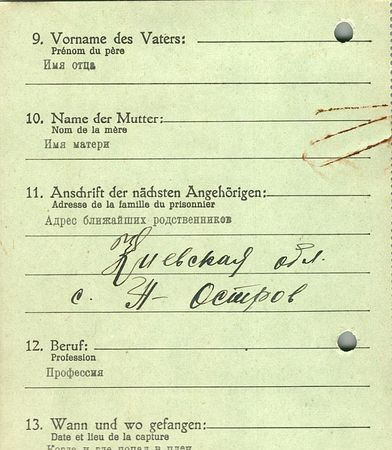 9. Vorname des Vaters:
Prénom du père
Имя отца
10. Name der Mutter:
Nom de la mère
Имя матери
11. Anschrift der nächsten Angehörigen:
Adresse de la famille du prisonnier
Адрес ближайших родственников
Киевская обл.
с. Н- Остров
12. Beruf:
Profession
Профессия
13. Wann und wo gefangen:
Date et lieu de la capture
Когда и где попал в плен